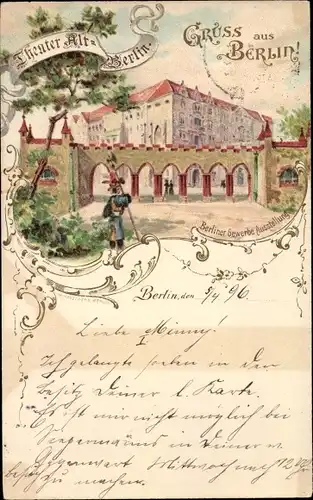 Theater Alt-
Berlin.
GRUSS aus
BERLIN!
Berliner Gewerbe Ausstellung
Berlin, den 5/4 96
Liebe Minny!
I
Ich gelangte soeben in den
Besitz Deiner l. Karte.
Es ist mir nicht möglich bei
in Deiner
Gegenwart Mittwoch
zu machen.